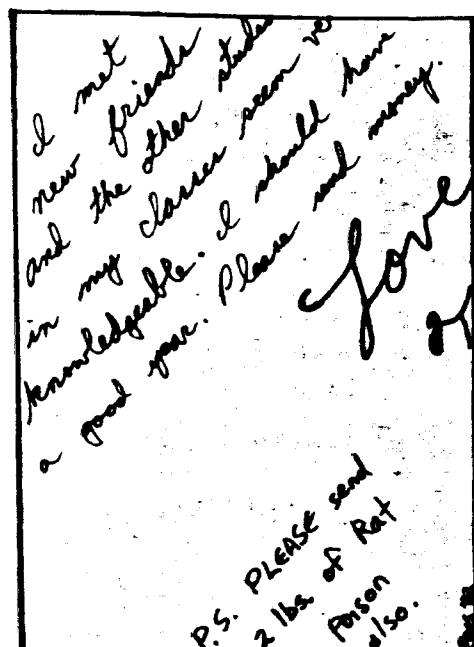 I met
new friends
and the other
in my classes seem
knowledgeable. I should have
a good year. Please send money.
Love
P.S. PLEASE send
2 lbs. of Rat
Poison
also.